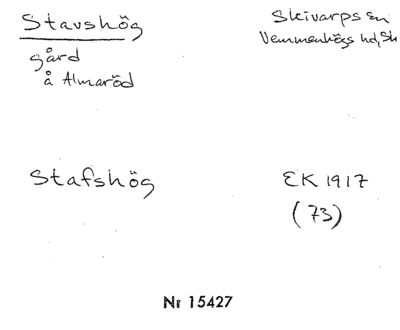 Stavshög
gård
å Almaröd
Skivarps sn
Vemmenhögs hd, Sk
Stafshög
EK 1917
(73)
Nr 15427